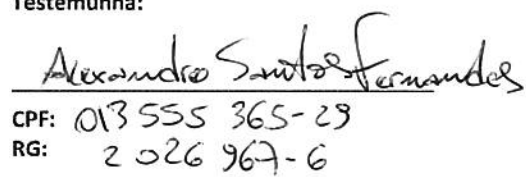 Testemunha:
Alexandro Santos Fernandes
CPF: 013 555 365-29
RG: 2026 967-6